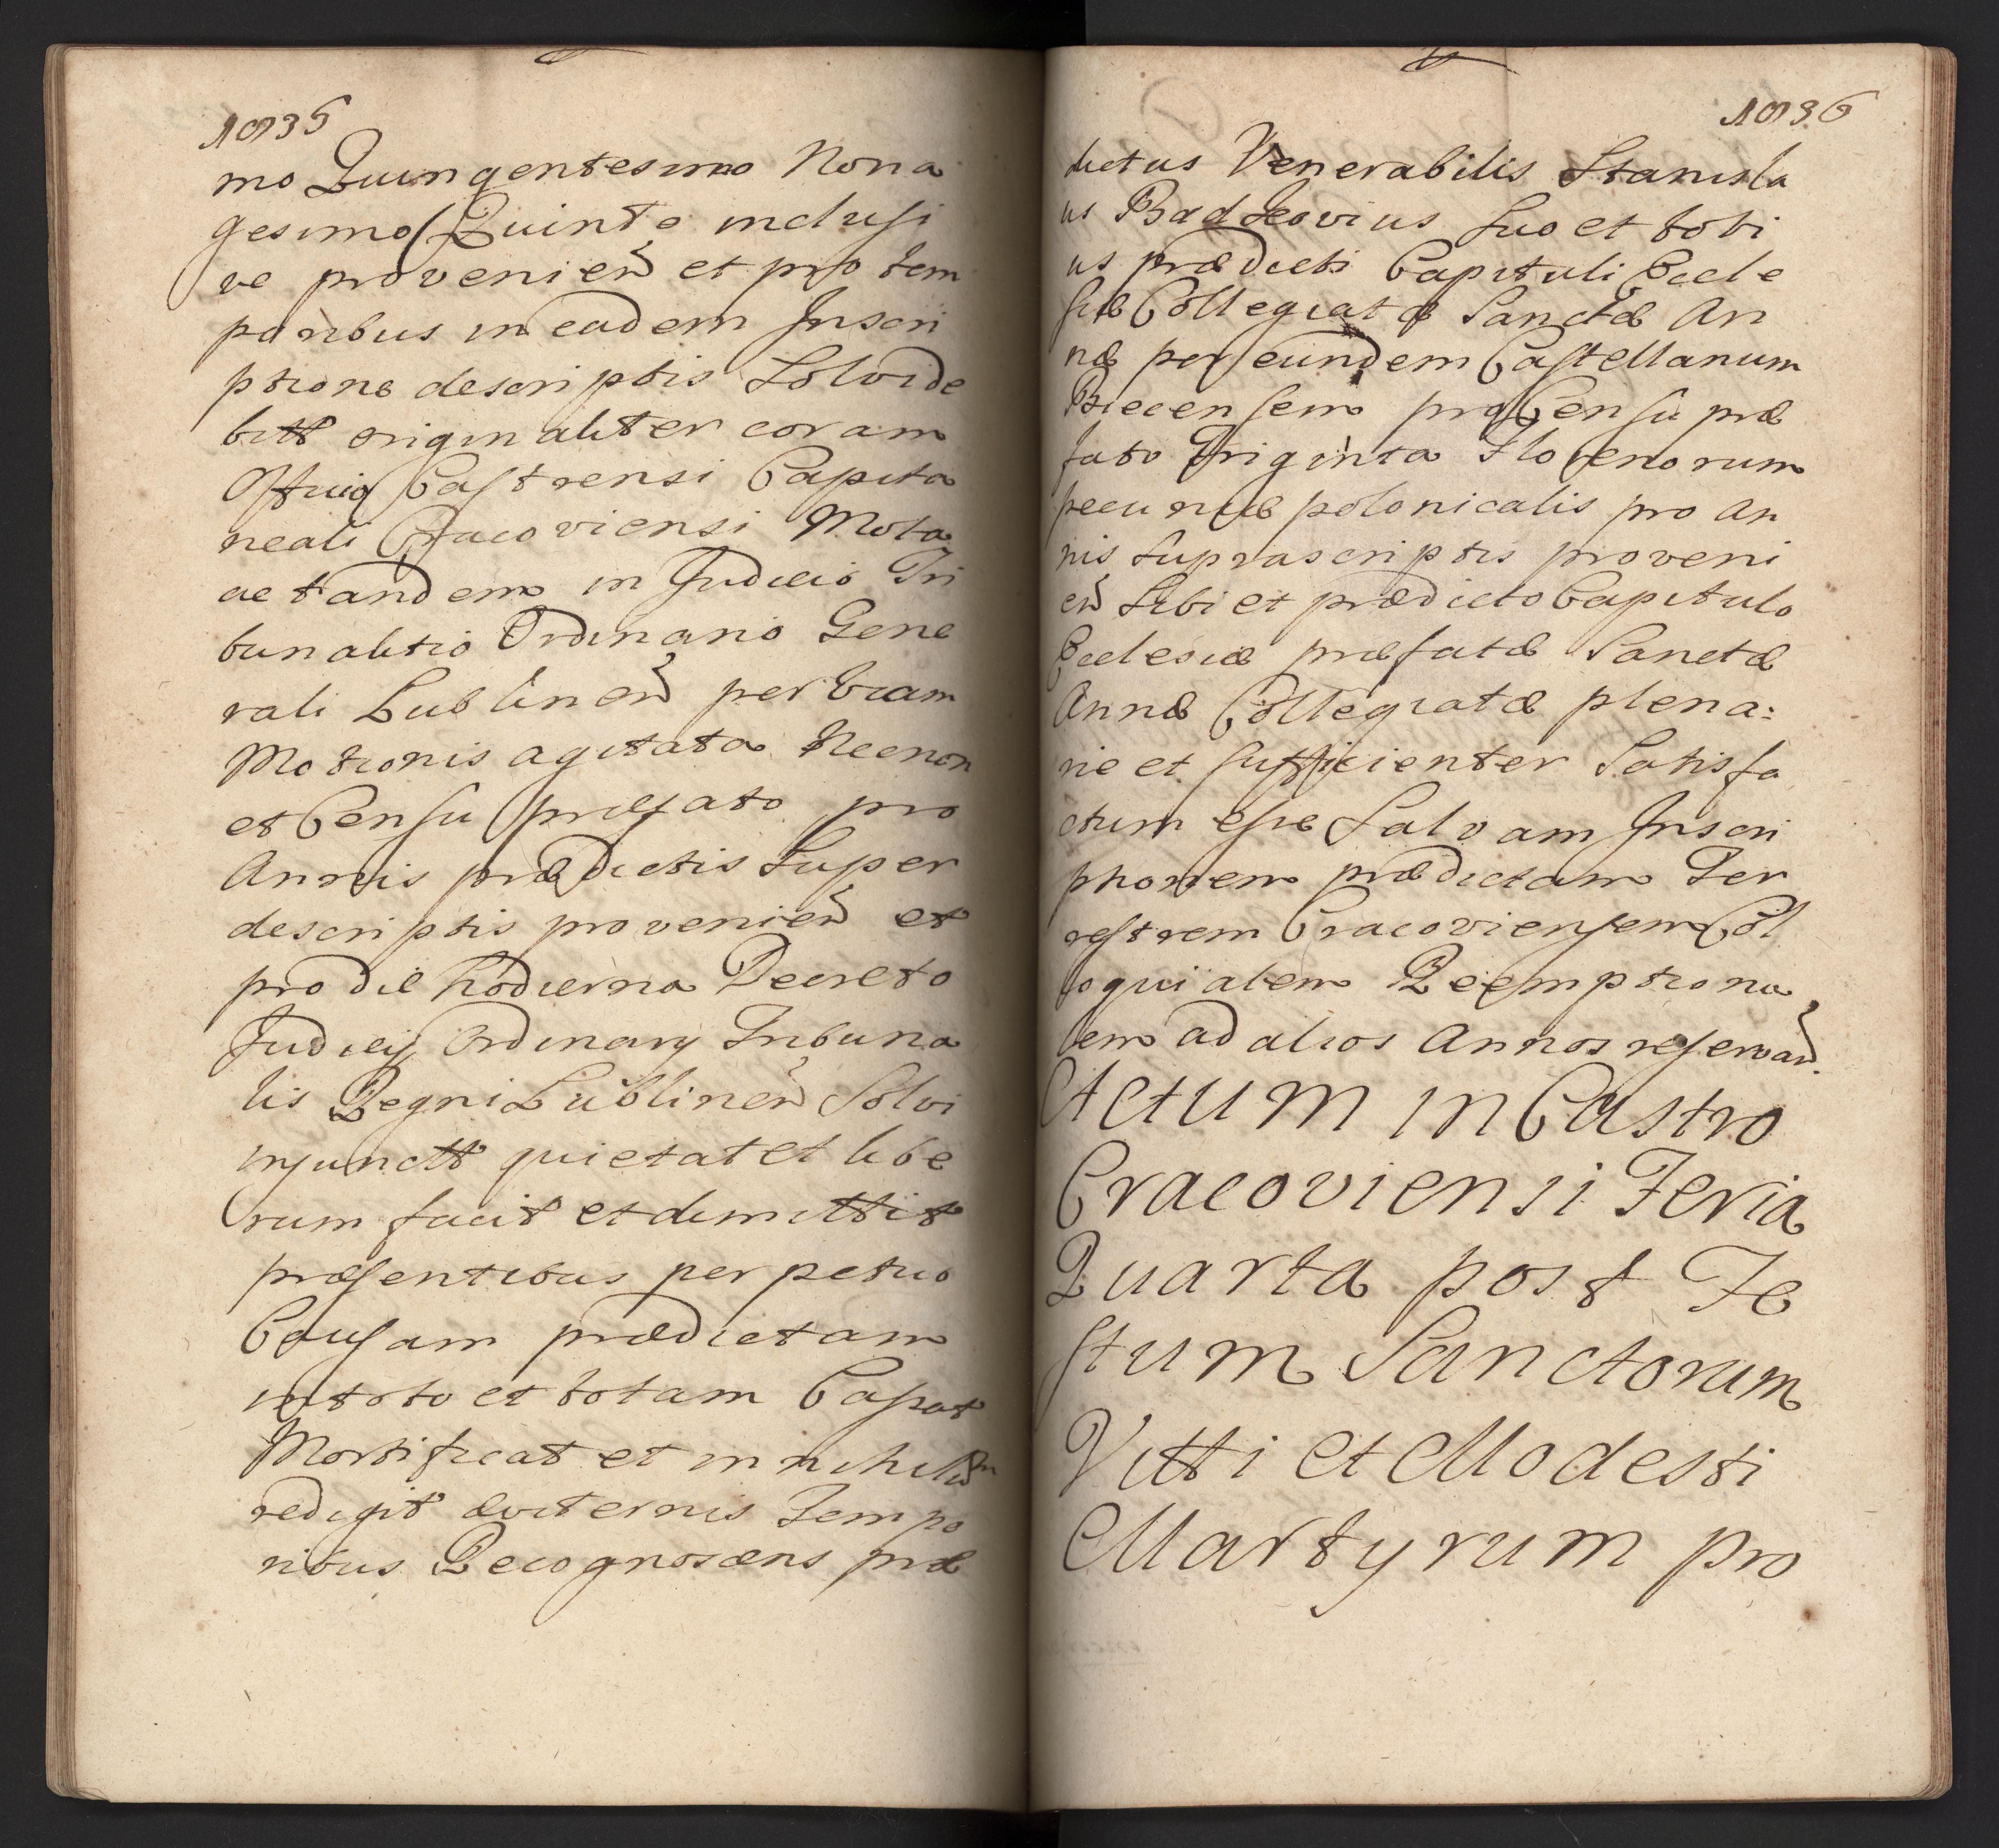 1035
mo Quingentesimo Nona
gesimo Quinto inclusi
ve provenien̄ et pro tem
poribus in eadem Inscri
ptione descriptis Solvi de
bitt originaliter coram
Officio Castrensi Capita
neali Cracoviensi Mota
ac tandem in Judicio Tri
bunalitio Ordinario Gene
rali Lublinen̄ per viam
Motionis agitata Necnon
et Censu præfato pro
Annis prædictis Super
descriptis provenien̄ et
pro die hodierna Decreto
Judicij Ordinarij Tribuna
lis Regni Lublinen̄ Solvi
injunctt quietat et libe
rum facit et dimittit
præsentibus perpetuo
Causam prædictam
in toto et totam Cassat
Mortificat et in nihilum
redigit æviternis Tempo
ribus Recognoscens præ
1036
dictus Venerabilis Stanisla
us Badzovius Suo et toti
us prædicti Capituli Eccle
siæ Collegiatæ Sanctæ An
næ per eundem Castellanum
Biecensem pro Censu præ
fato Triginta Florenorum
pecuniæ polonicalis pro an
nis Suprascriptis proveni
en̄ Sibi et prædicto Capitulo
Ecclesiæ præfatæ Sanctæ
Annæ Collegiatæ plena:
rie et sufficienter Satisfa
ctum esse Salvam Inscri
ptionem prædictam Ter
restrem Cracoviensem Col
loquialem Reemptiona
lem ad alios Annos reservan̄.
Actum in Castro
Cracoviensi Feria
Quarta post Fe
stum Sanctorum
Vitti et Modesti
Martyrum pro